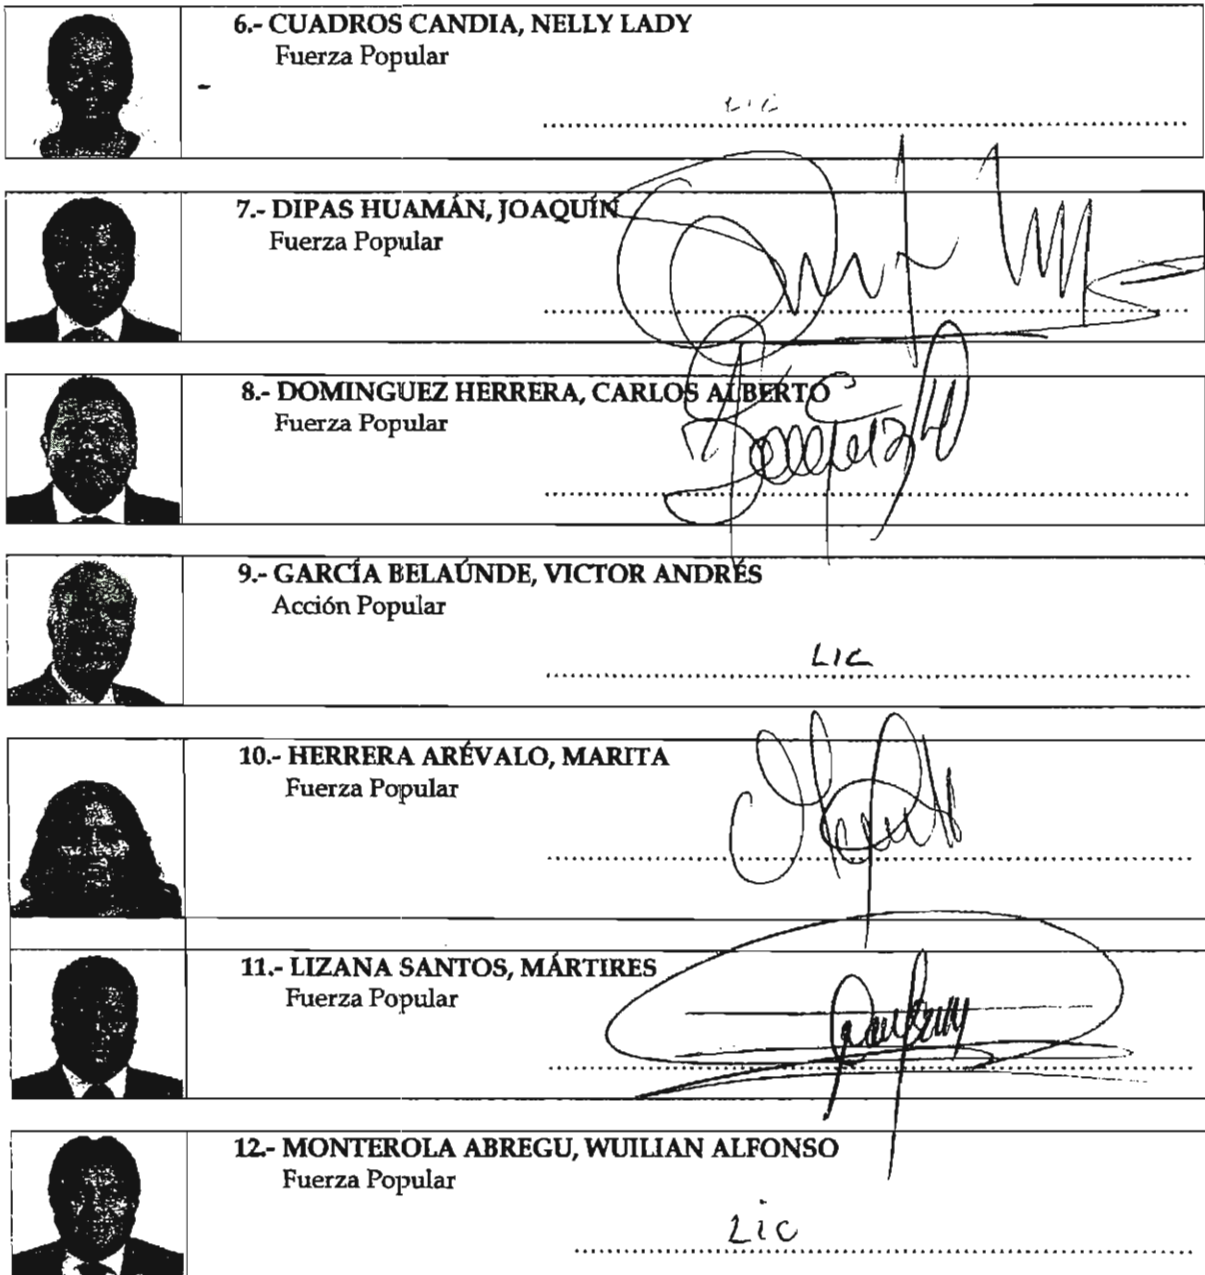 6.- CUADROS CANDIA, NELLY LADY
Fuerza Popular
Lic
7.- DIPAS HUAMÁN, JOAQUÍN
Fuerza Popular
8.- DOMINGUEZ HERRERA, CARLOS ALBERTO
Fuerza Popular
9.- GARCÍA BELAÚNDE, VICTOR ANDRÉS
Acción Popular
LIC
10.- HERRERA ARÉVALO, MARITA
Fuerza Popular
11.- LIZANA SANTOS, MÁRTIRES
Fuerza Popular
12.- MONTEROLA ABREGU, WUILIAN ALFONSO
Fuerza Popular
Lic